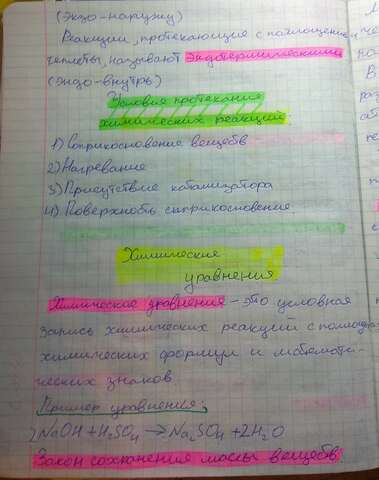 (экзо-наружу)
Реакции, протекающие с поглощением
теплоты, называют эндотермическими
(эндо-внутрь)
Условия протекания
химических реакций
1) Соприкосновение веществ
2) Нагревание
3) Присутствие катализатора
4) Поверхность соприкосновение
Химические
уравнения
Химическое уравнения - это условная
запись химических реакций с помощью
химических формул и математи-
ческих знаков
Пример уравнения:
2NaOH + H₂SO₄ → Na₂SO₄ + 2H₂O
Закон сохранения массы веществ.